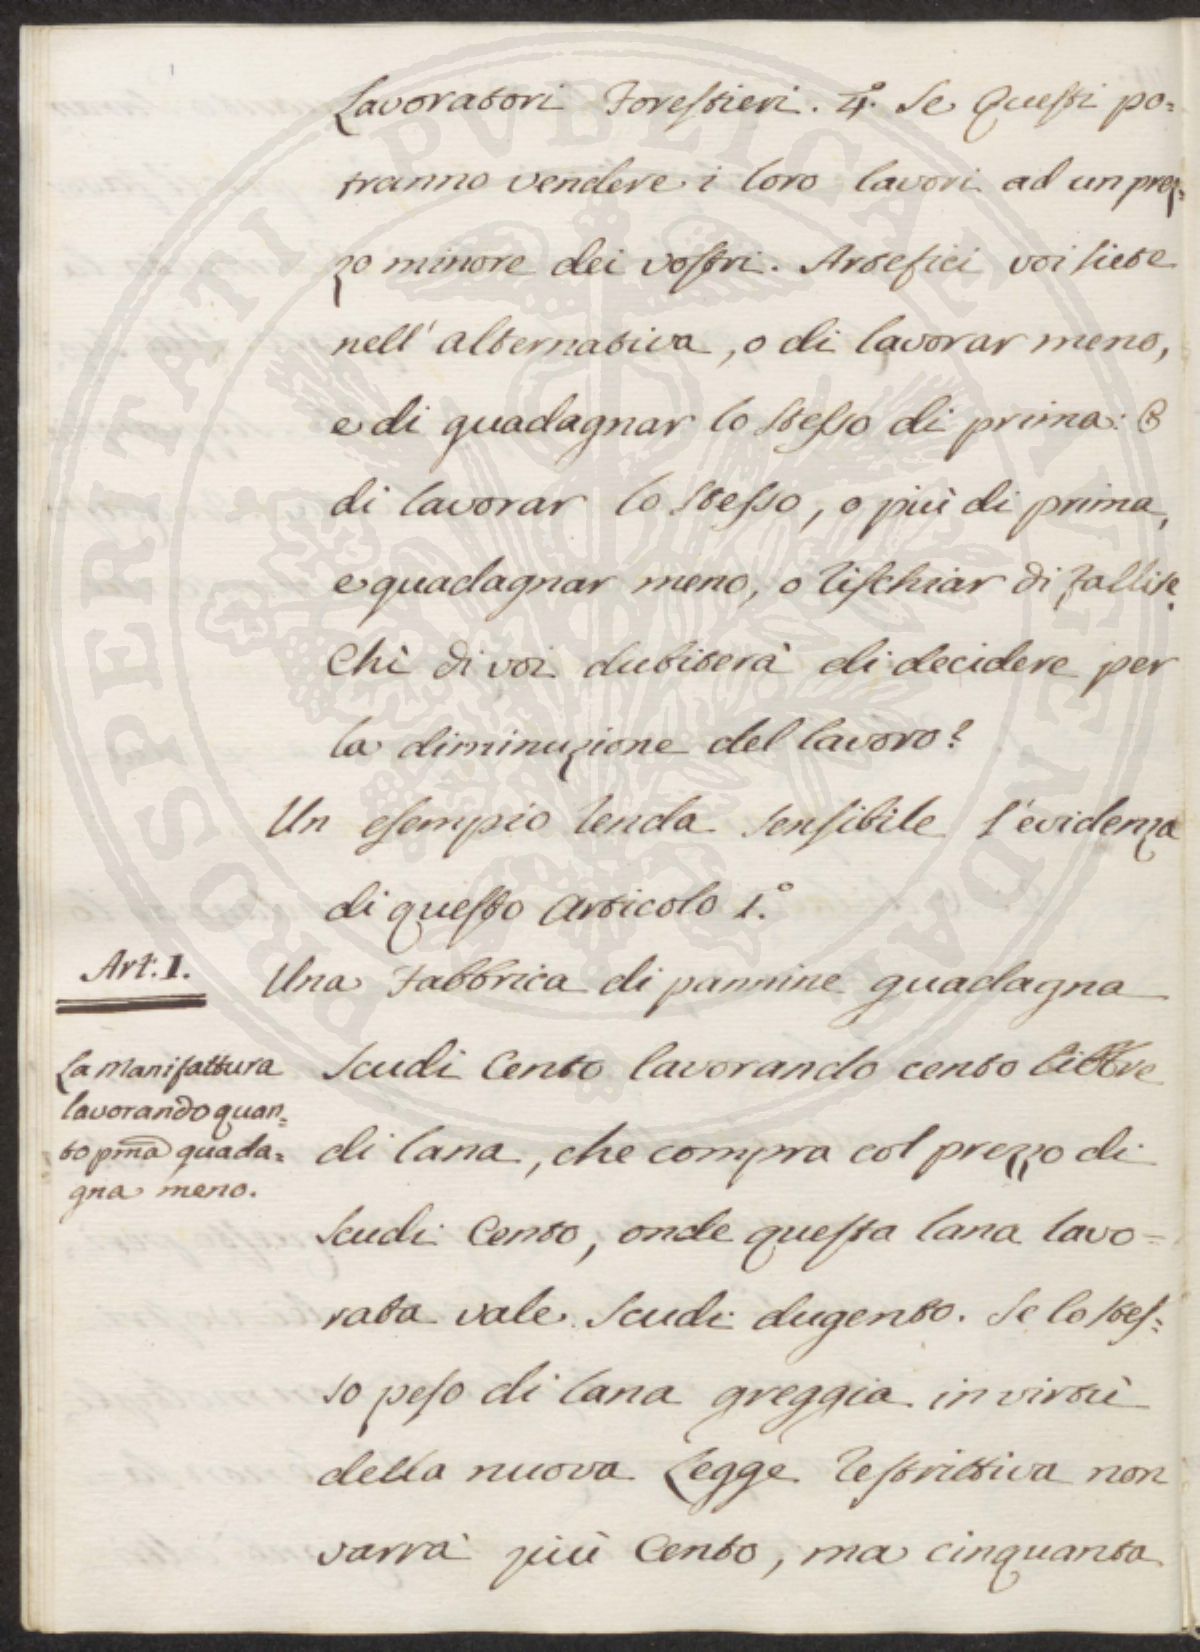 Lavoratori Forestieri. 4.° Se Questi po=
tranno vendere i loro lavori ad un prez=
zo minore dei vostri. Artefici voi siete
nell' alternativa, o di lavorar meno,
e di guadagnar lo stesso di prima: O
di lavorar lo stesso, o più di prima,
e guadagnar meno, o rischiar di fallire.
Chi di voi dubiterà di decidere per
la diminuzione del lavoro?
Un esempio renda sensibile l'evidenza
di questo Articolo 1.°
Art: I.
Una Fabbrica di pannine guadagna
Scudi Cento lavorando cento libbre
di lana, che compra col prezzo di
Scudi Cento, onde questa lana lavo=
rata vale Scudi dugento. Se lo stes=
so peso di lana greggia in virtù
della nuova Legge restrittiva non
varrà più Cento, ma cinquanta
La Manifattura
lavorando quan=
to pma guada=
gna meno.
PROSPERITATI PVBLICAE AVGENDAE